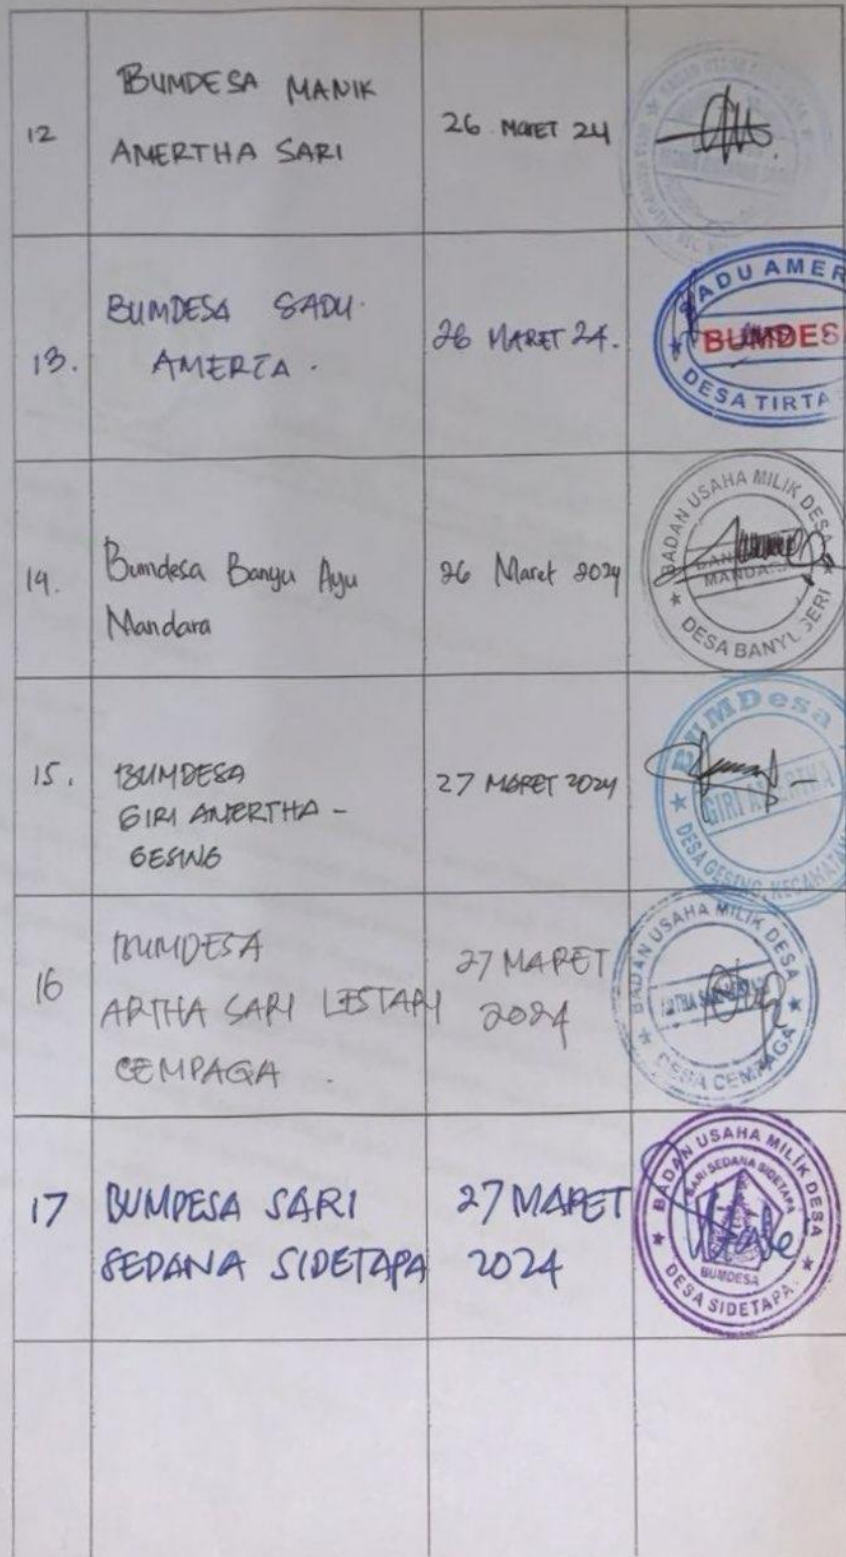 12
BUMDESA MANIK
AMERTHA SARI
26 MARET 24
13.
BUMDESA SADU
AMERTA.
26 MARET 24.
SADU AMER
BUMDES
DESA TIRTA
14.
Bumdesa Banyu Ayu
Mandara
26 Maret 2024
BADAN USAHA MILIK DESA
MANDA
DESA BANYU SERI
15.
BUMDESA
GIRI AMERTHA -
GESING
27 MARET 2024
BUMDesa
GIRI AMERTHA
DESA GESING, KECAMATAN
16
BUMDESA
ARTHA SARI LESTARI
CEMPAGA.
27 MARET
2024
BADAN USAHA MILIK DESA
ARTHA SARI LESTARI
DESA CEMPAGA
17
BUMDESA SARI
SEDANA SIDETAPA
27 MARET
2024
BADAN USAHA MILIK DESA
SARI SEDANA SIDETAPA
BUMDESA
DESA SIDETAPA